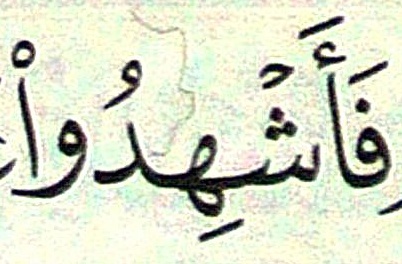 فَأَشْهِدُواْ